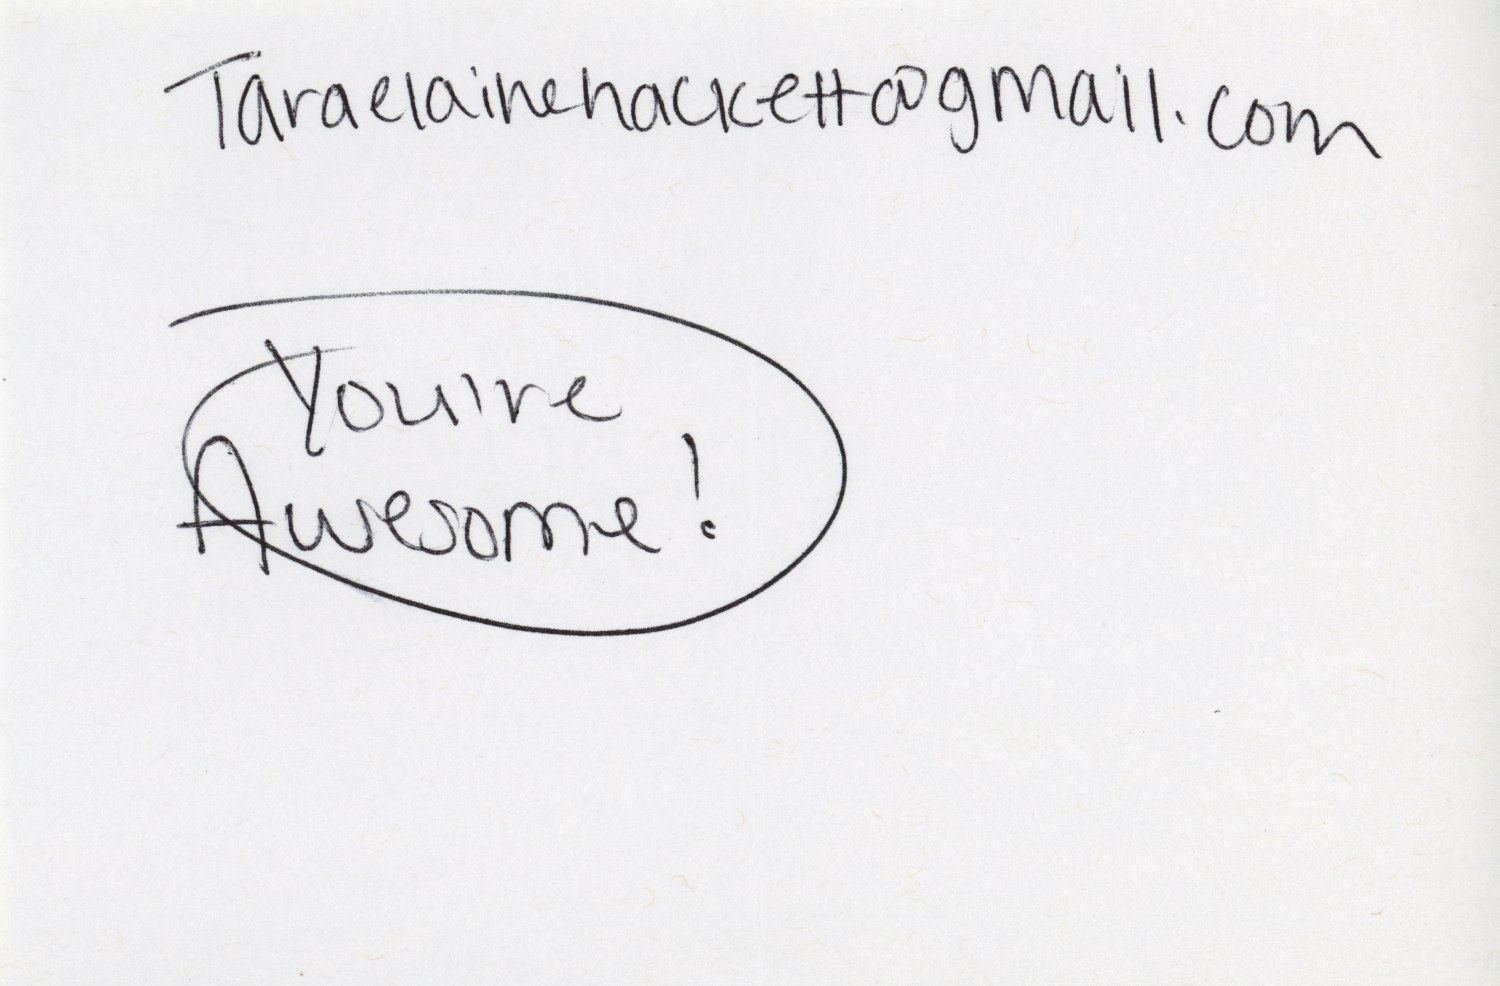 Taraelainehackett@gmail.com
You're
Awesome!